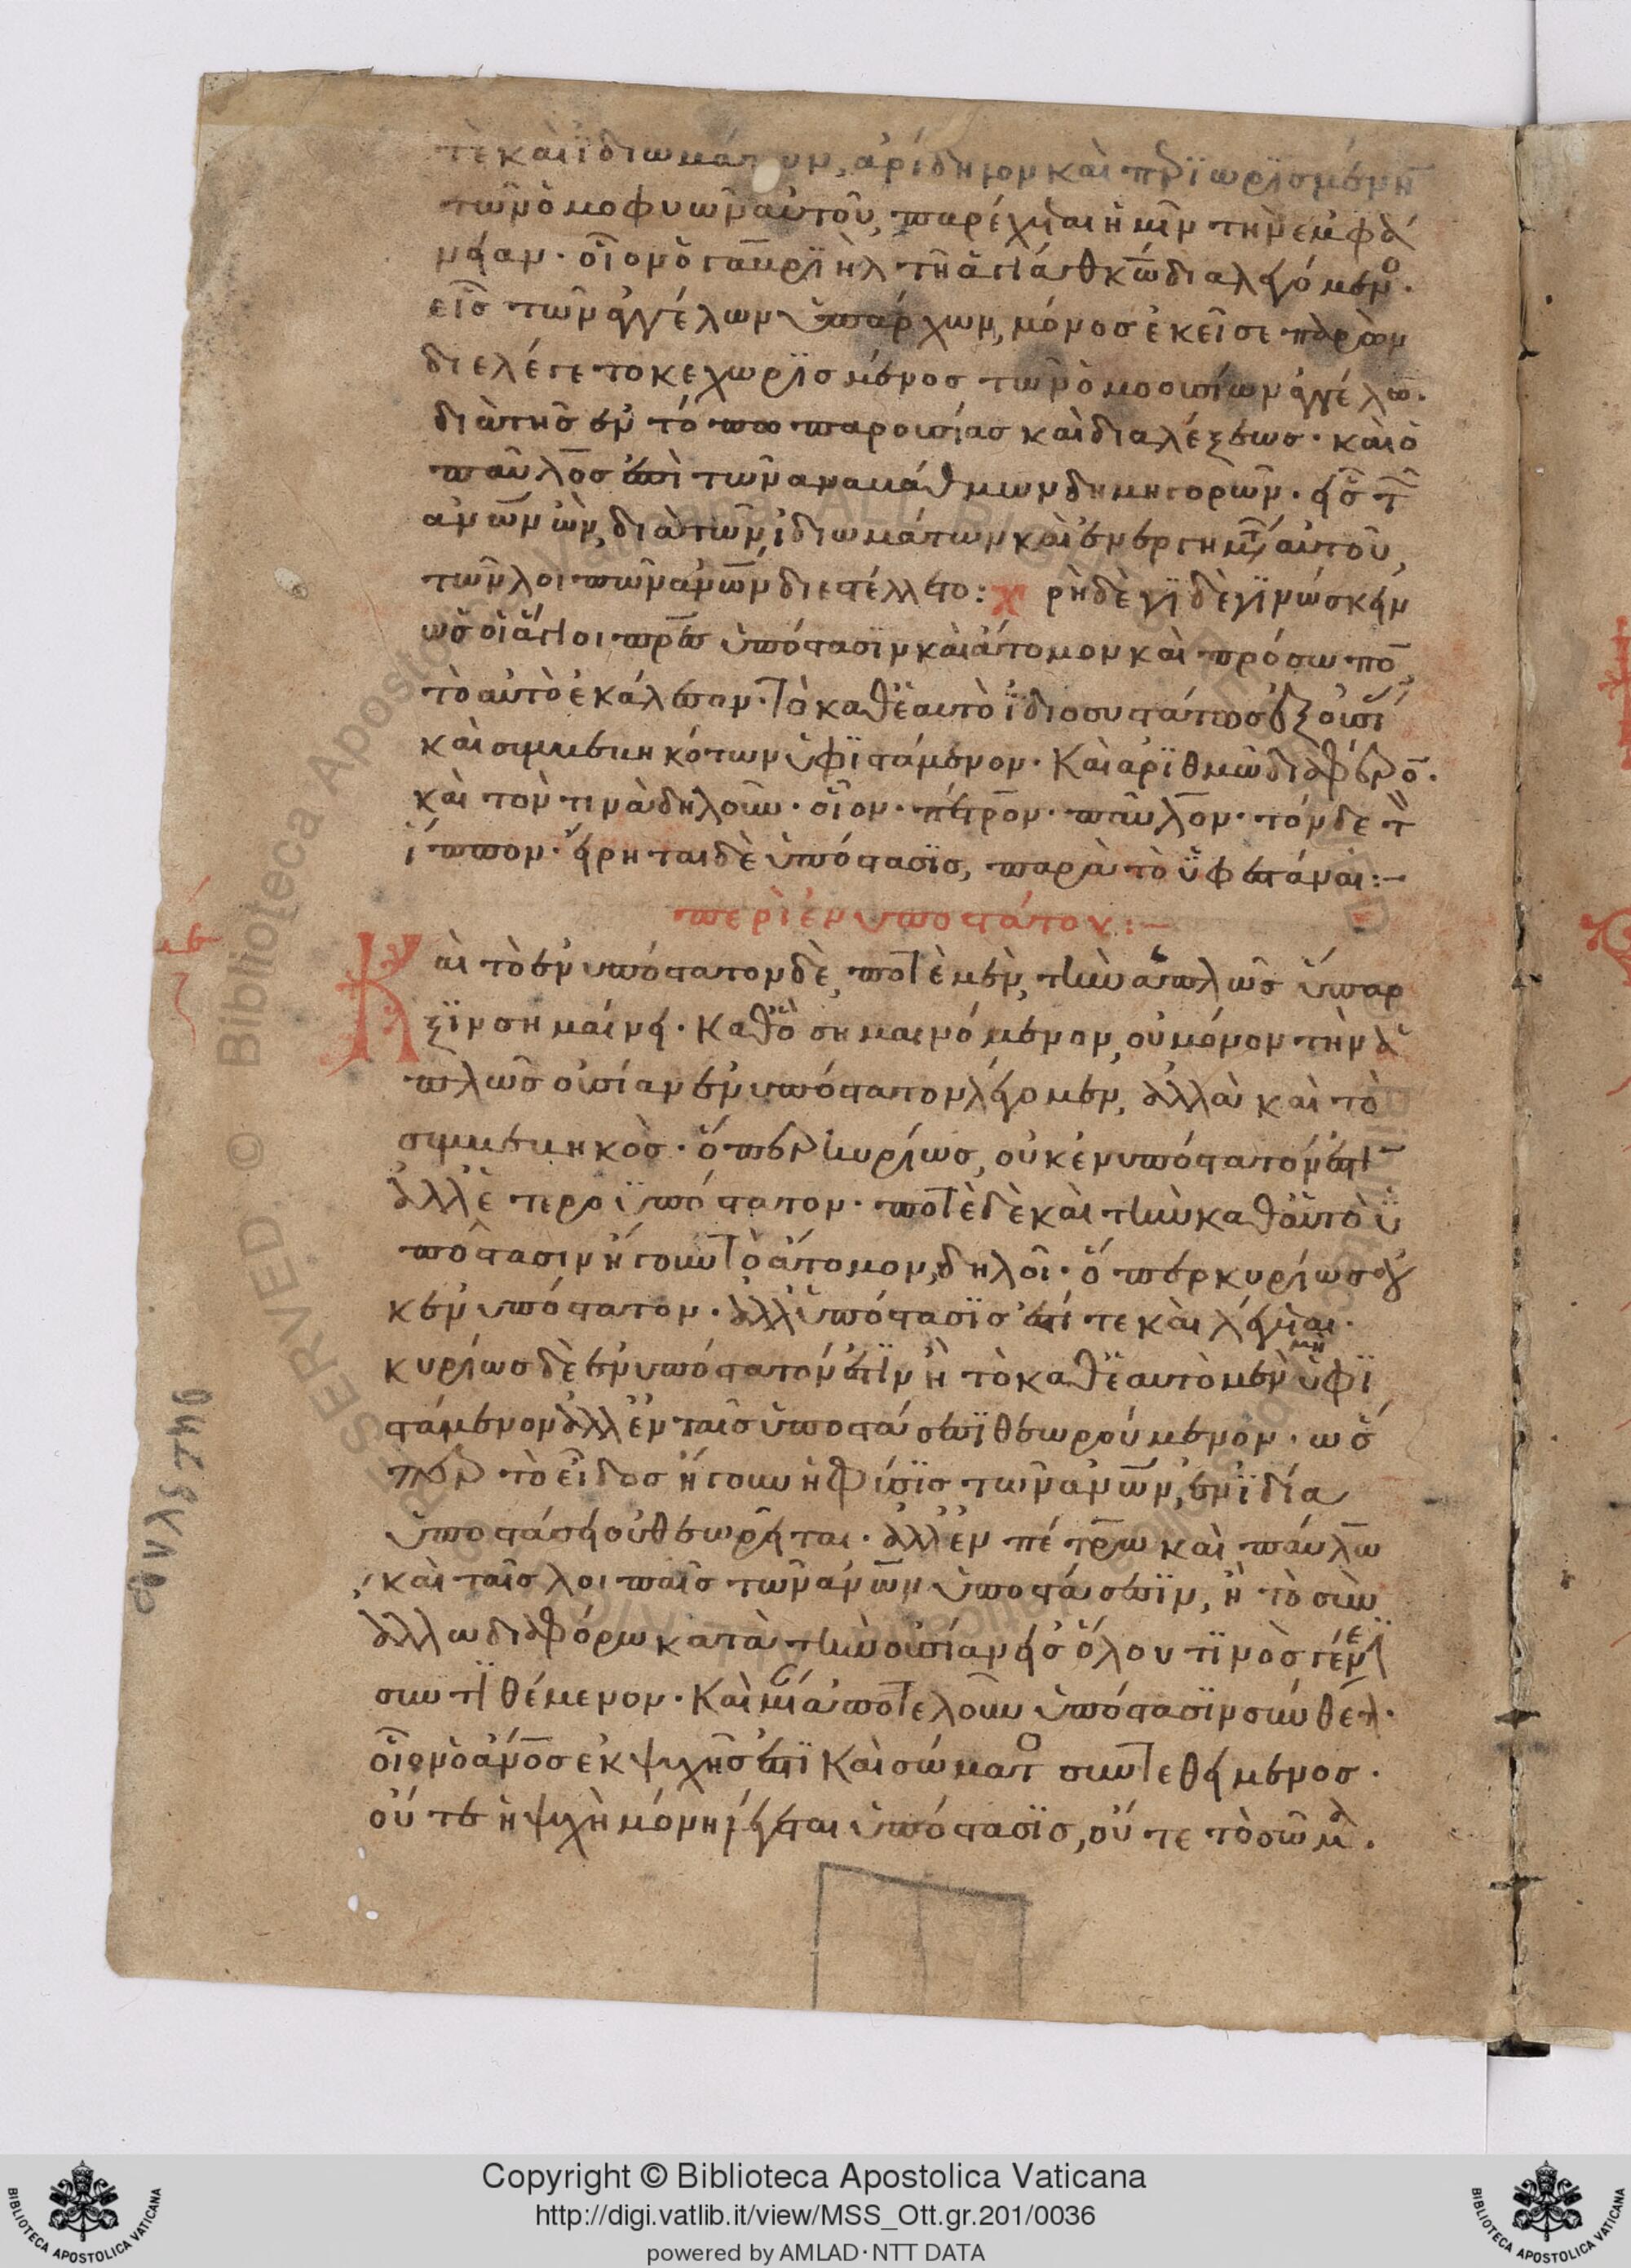 τὲ καὶ ἰδιωμάτων, ἀρίδηλον καὶ περϊωρϊσμένην
τῶν ὁμοφυῶν αὐτοῦ, παρέχεται ἡμῖν τὴν ἐμφά
νειαν· οἷον ὁ γαβρϊὴλ τῇ ἁγία θκῶ διαλεγόμενος·
εἷς τῶν ἀγγέλων ὑπάρχων, μόνος ἐκεῖσε παρὼν
διελέγετο κεχωρϊσμένος τῶν ὁμοουσίων ἀγγέλων·
διὰ τῆς ἐν τόπω παρουσίας καὶ διαλέξεως· καὶ ὁ
παῦλος ἐπὶ τῶν ἀναβάθμων δημηγορῶν· εἷς τῶν
ἀνων ὢν, διὰ τῶν ἰδιωμάτων καὶ ἐνεργημάτων αὐτοῦ,
τῶν λοιπῶν ἀνων διεστέλλετο: χρὴ δὲ γϊνώσκειν
ὡς οἱ ἅγιοι πρες ὑπόστασϊν καὶ ἄτομον καὶ πρόσωπον
τὸ αὐτὸ ἐκάλεσαν· τὸ καθ ἑαυτὸ ἰδιοσυστάτως ἐξ οὐσίας
καὶ συμβεβηκότων ὑφϊστάμενον· Καὶ ἀρϊθμῶ διαφέρον·
καὶ τὸν τινὰ δηλοῦν· οἷον· πέτρον· παῦλον· τόνδε τὸν
ἵππον· εἴρηται δὲ ὑπόστασϊς, παρὰ τὸ ὑφεστάναι:-
περὶ ἐνυποστάτου:-
Καὶ τὸ ἐνυπόστατον δὲ, ποτὲ μὲν, τὴν ἁπλῶς ὕπαρ
ξϊν σημαίνει· καθ ὃ σημαινόμενον, οὐ μόνον τὴν ἁ
πλῶς οὐσίαν ἐνυπόστατον λέγομεν, ἀλλὰ καὶ τὸ
συμβεβηκὸς· ὅπερ κυρίως, οὐκ ἐνυπόστατόν ἐστιν
ἀλλ ἑτεροϋπόστατον· ποτὲ δὲ καὶ τὴν καθ αὑτὸ ὑ
πόστασιν ἤγουν τὸ ἄτομον, δηλοῖ· ὅπερ κυρίως οὐ
κ ἐνυπόστατον· ἀλλ ὑπόστασϊς ἐστί τε καὶ λέγεται·
κυρίως δὲ ἐνυπόστατόν ἐστϊν ἢ τὸ καθ ἑαυτὸ μὲν μὴ ὑφϊ
στάμενον ἀλλ ἐν ταῖς ὑποστάσεσϊ θεωρούμενον· ὥς
περ τὸ εἶδος ἤγουν ἡ φύσϊς τῶν ἀνων, ἐν ϊδία
ὑποστάσει οὐ θεωρεῖται· ἀλλ ἐν πέτρω καὶ παύλω
καὶ ταῖς λοιπαῖς τῶν ἀνων ὑποστάσεσϊν, ἢ τὸ σὺν
ἄλλω διαφόρω κατὰ τὴν οὐσίαν εἰς ὅλου τϊνὸς γένεσϊν
συντϊθέμενον· Καὶ μίαν ἀποτελοῦν ὑπόστασϊν σύνθετον·
οἷον ὁ ἄνος ἐκ ψυχῆς ἐστϊ Καὶ σώματος συντεθειμένος·
οὔτε ἡ ψυχὴ μόνη λέγεται ὑπόστασϊς, οὔτε τὸ σῶμα·
Copyright © Biblioteca Apostolica Vaticana
http://digi.vatlib.it/view/MSS_Ott.gr.201/0036
powered by AMLAD·NTT DATA
BIBLIOTECA APOSTOLICA VATICANA
BIBLIOTECA APOSTOLICA VATICANA